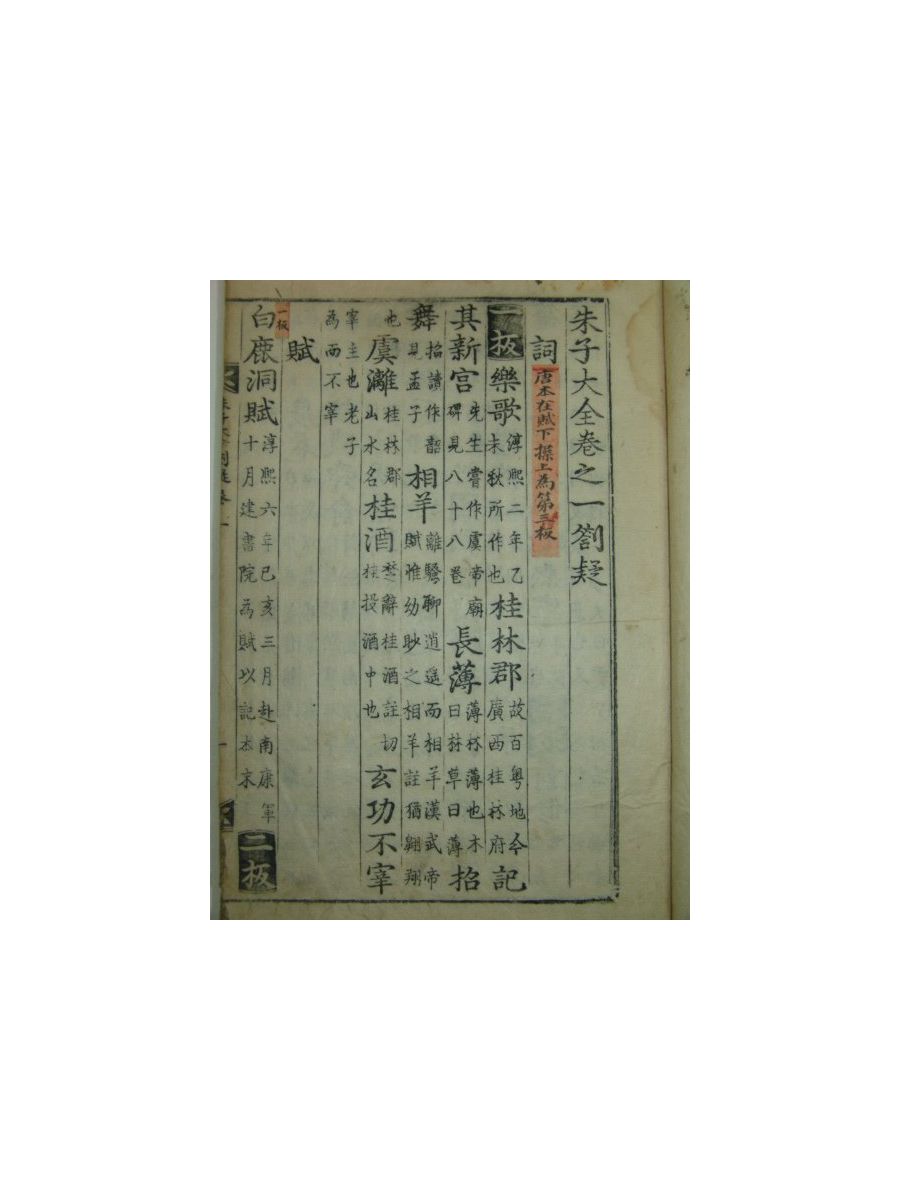 朱子大全卷之一劄疑
詞 唐本在賦下操上為第三板
一板 樂歌 淳熙二年乙未秋所作也 桂林郡 故百粤地今廣西桂林府 記
其新宮 先生嘗作虞帝廟碑見八十八卷 長薄 薄林薄也木曰林草曰薄 招
舞 招讀作韶見孟子 相羊 離騷聊逍遥而相羊漢武帝賦惟幼眇之相羊註猶翱翔
也 虞灕 桂林郡山水名 桂酒 楚辭桂酒註切桂投酒中也 玄功不宰
宰主也老子為而不宰
賦
一板
白鹿洞賦 淳熙六年己亥三月赴南康軍十月建書院為賦以記本末 二板